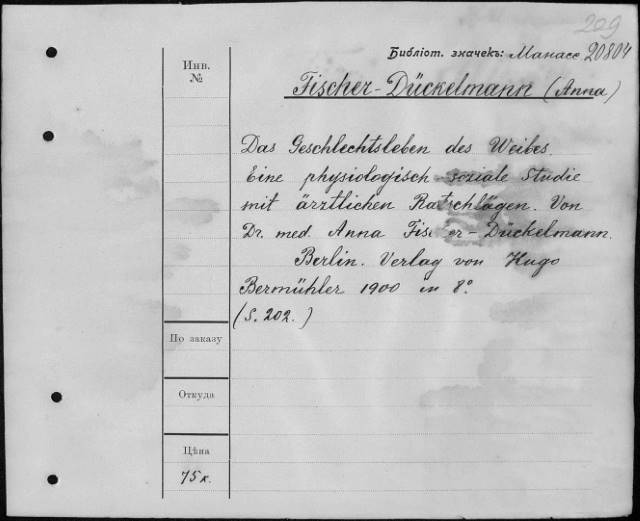 209
Библіот. значекъ: Манасс 20804
Инв.
№
Fischer-Dückelmann (Anna)
Das Geschlechtsleben des Weibes.
Eine physiologisch-soziale Studie
mit ärztlichen Ratschlägen. Von
Dr. med. Anna Fischer-Dückelmann.
Berlin. Verlag von Hugo
Bermühler 1900 in 8°
(S. 202.)
По заказу
Откуда
Цѣна
75 к.